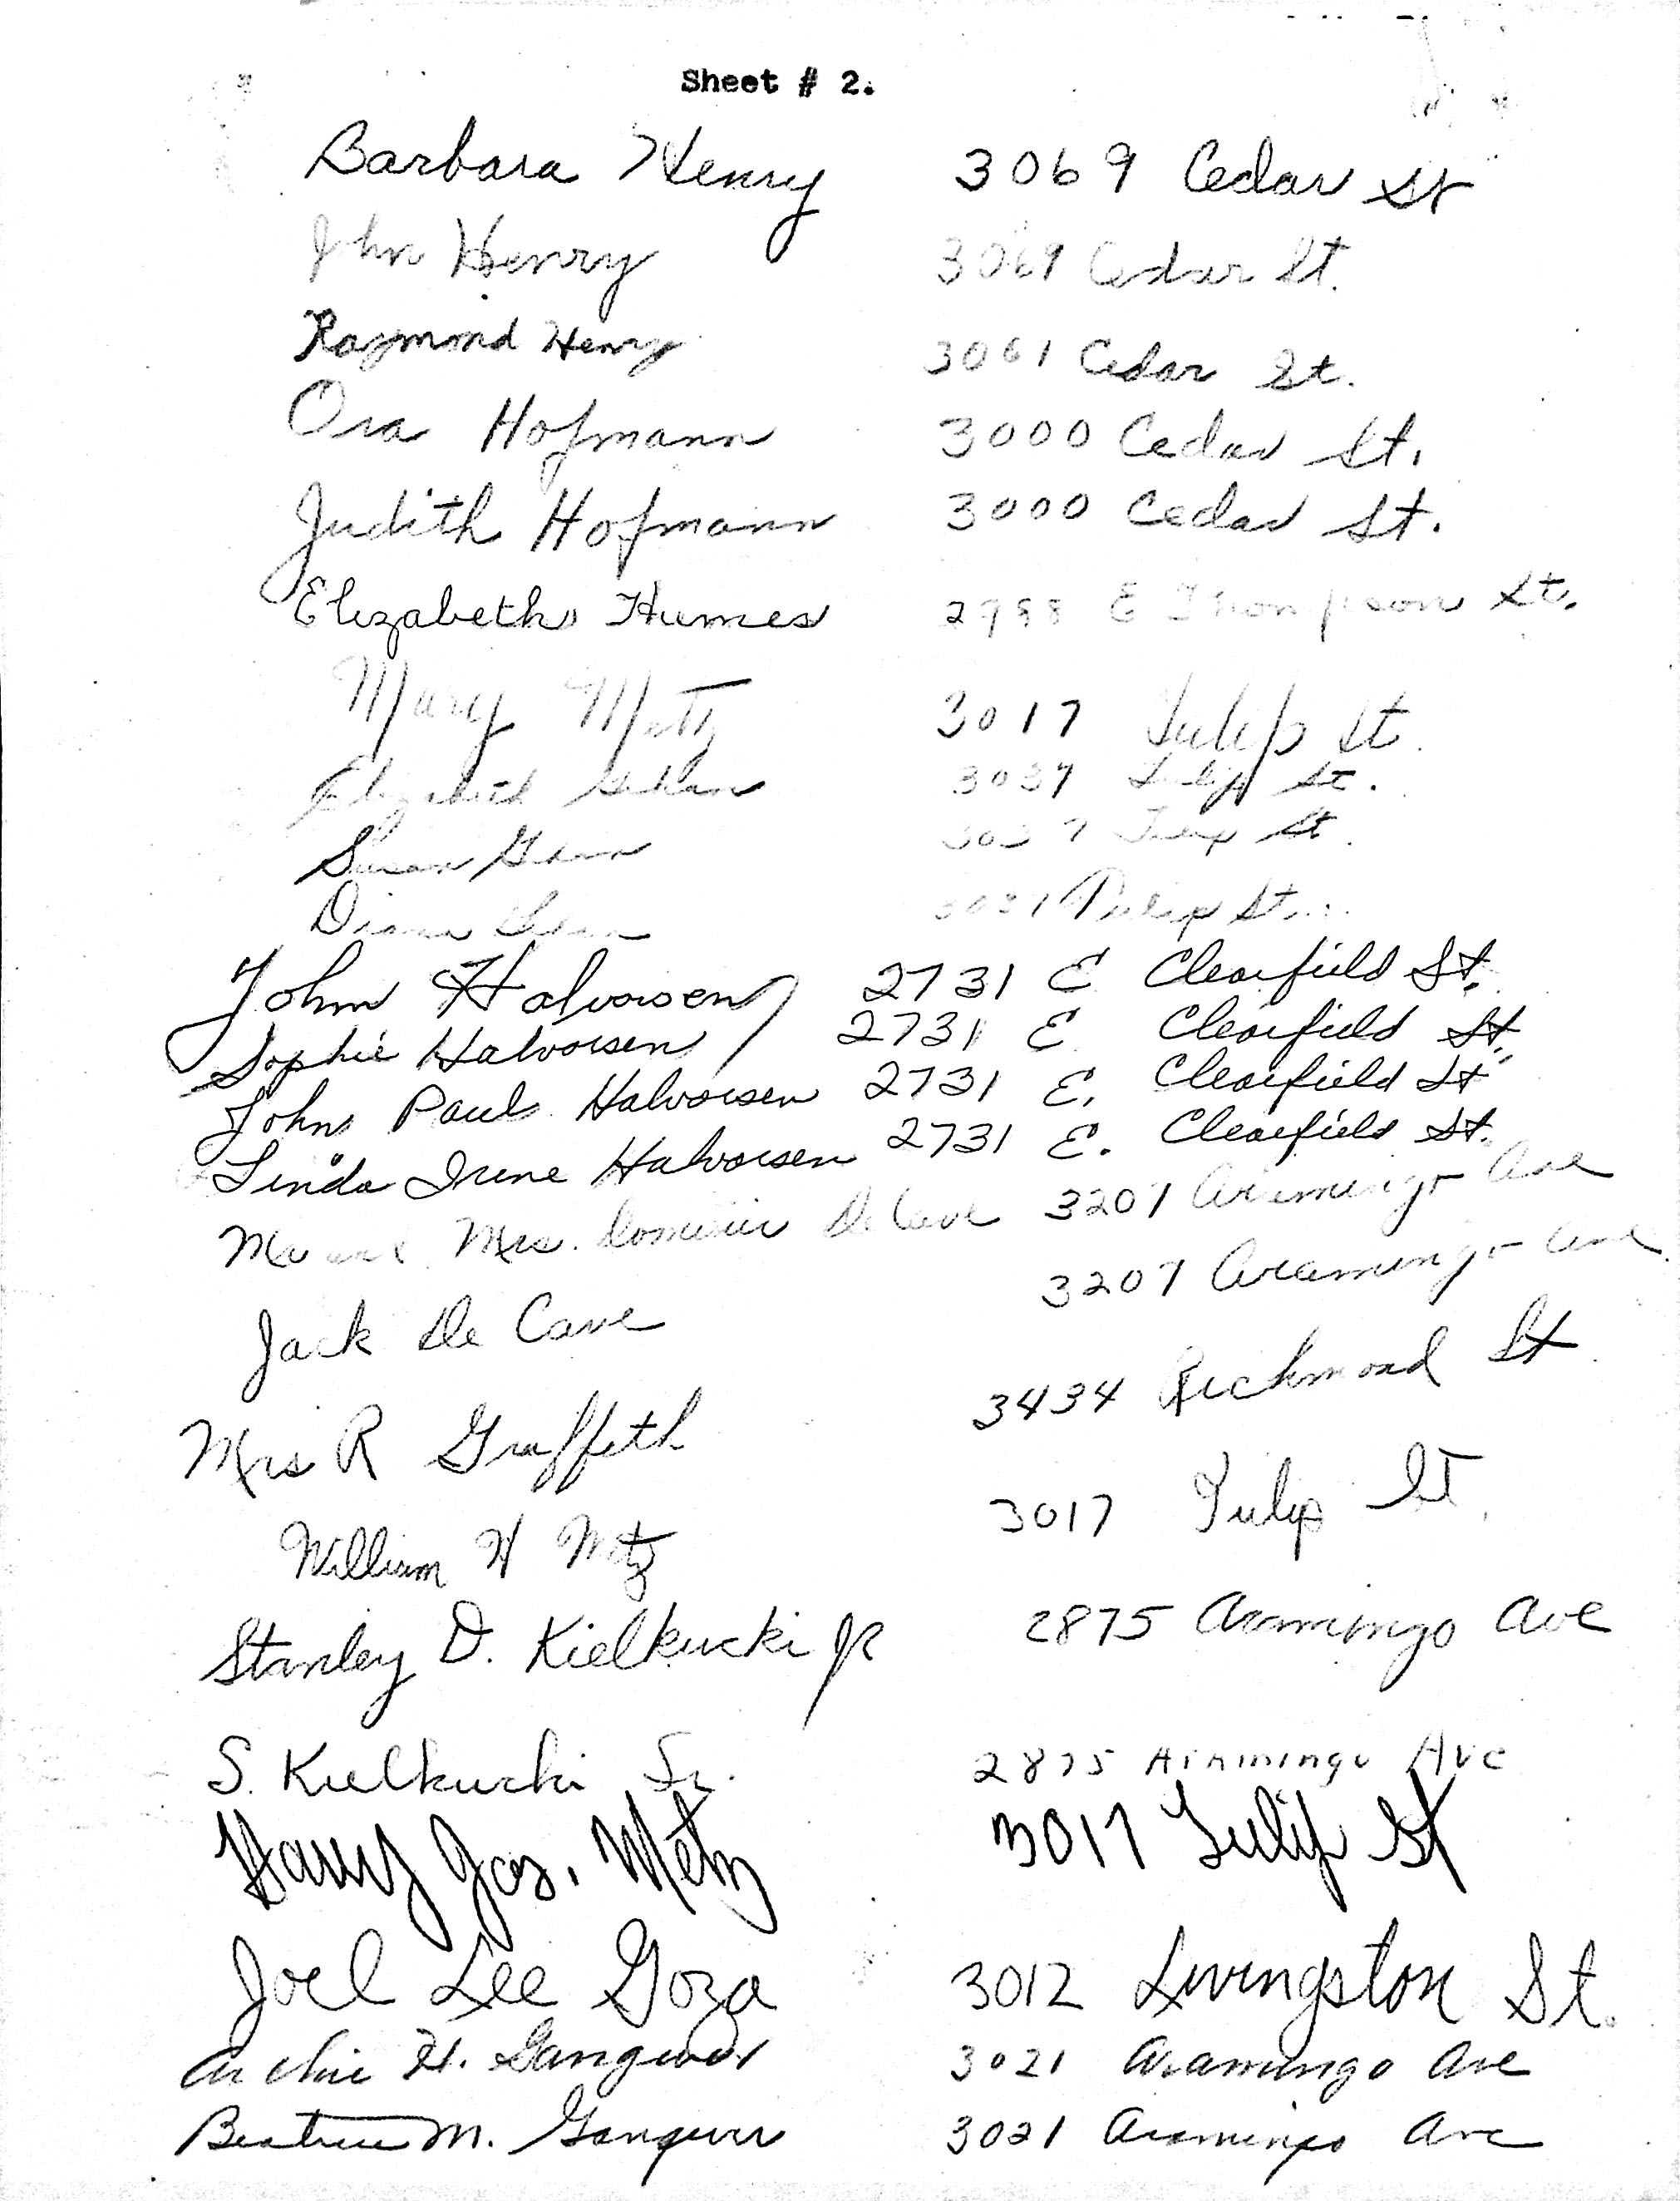 Sheet # 2.
Barbara Henry 3069 Cedar St
John Henry 3069 Cedar St.
Raymond Henry 3061 Cedar St.
Ora Hofmann 3000 Cedar St.
Judith Hofmann 3000 Cedar St.
Elizabeth Humes 2798 E Thompson St.
Mary Metz 3017 Tulip St.
Elizabeth 3037 Tulip St.
Susan Tulip St.
Diana Tulip St.
John Halvorsen 2731 E Clearfield St.
Sophie Halvorsen 2731 E. Clearfield St.
John Paul Halvorsen 2731 E. Clearfield St
Linda Irene Halvorsen 2731 E. Clearfield St.
Mr and Mrs. De Cave 3207 Aramingo Ave
Jack De Cave 3207 Aramingo Ave
Mrs R Griffith 3434 Richmond St
William H Metz 3017 Tulip St.
Stanley D. Kielkucki Jr 2875 Aramingo Ave
S. Kielkucki Sr. 2875 Aramingo Ave
Harry Jos. Metz 3017 Tulip St
Joel Lee Goza 3012 Livingston St.
Archie H. Gangwer 3021 Aramingo Ave
Beatrice M. Gangwer 3021 Aramingo Ave